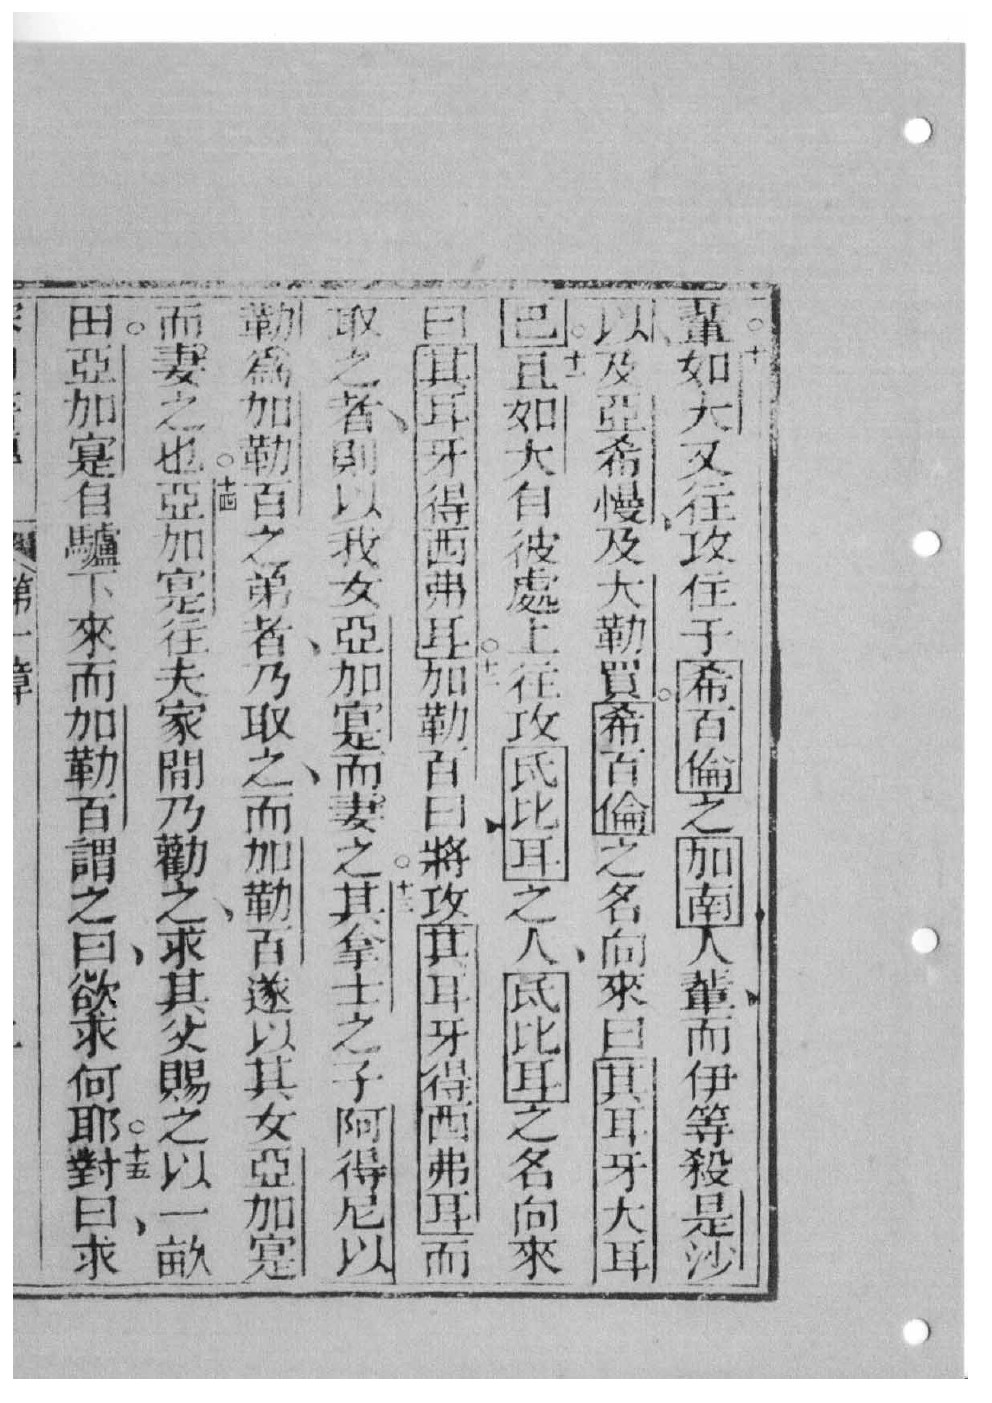 輩○十如大又往攻住于希百倫之加南人輩、而伊等殺是沙
以、及亞希慢、及大勒買○希百倫之名向來曰其耳牙大耳
巴○十一且如大自彼處上往攻氐比耳之人、氐比耳之名向來
曰其耳牙得西弗耳○十二加勒百曰、將攻其耳牙得西弗耳而
取之者、則以我女亞加寔而妻之○十三其拿士之子阿得尼以
勒爲加勒百之弟者、乃取之、而加勒百遂以其女亞加寔
而妻之也○十四亞加寔往夫家間乃勸之、求其父賜之以一畝
田○亞加寔自驢下來而加勒百謂之曰、欲求何耶○十五對曰、求
第一章